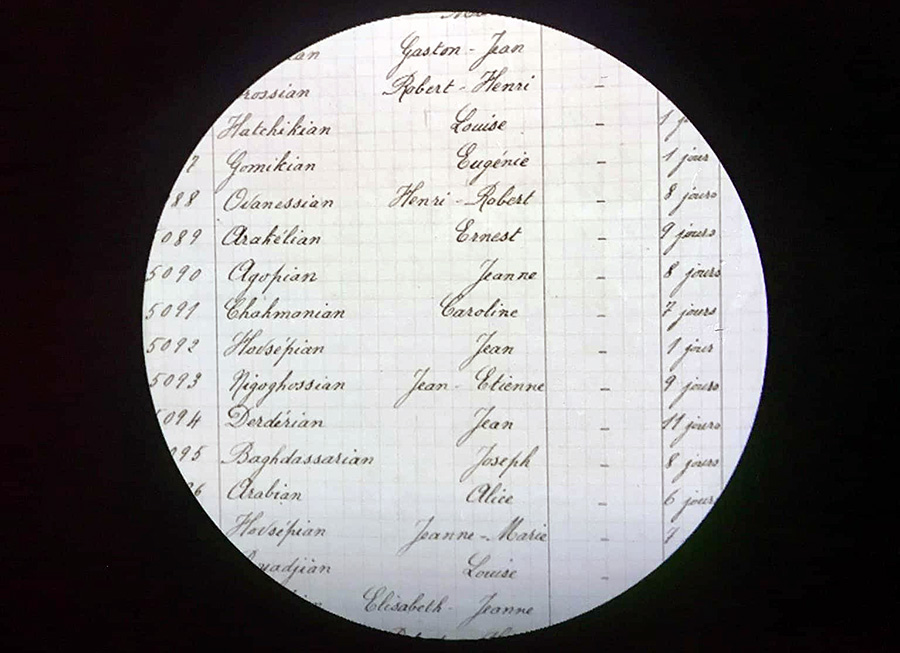 Gaston - Jean
rossian Robert - Henri -
Hatchikian Louise - 1
Gomikian Eugénie - 1 jour
88 Ovanessian Henri - Robert - 8 jours
5089 Arakélian Ernest - 9 jours
5090 Agopian Jeanne - 8 jours
5091 Chahmanian Caroline - 7 jours
5092 Hovsépian Jean - 1 jour
5093 Nigoghossian Jean - Etienne - 9 jours
5094 Derdérian Jean - 11 jours
095 Baghdassarian Joseph - 8 jours
6 Arabian Alice - 6 jours
Hovsépian Jeanne - Marie - 7
adjian Louise -
Elisabeth - Jeanne